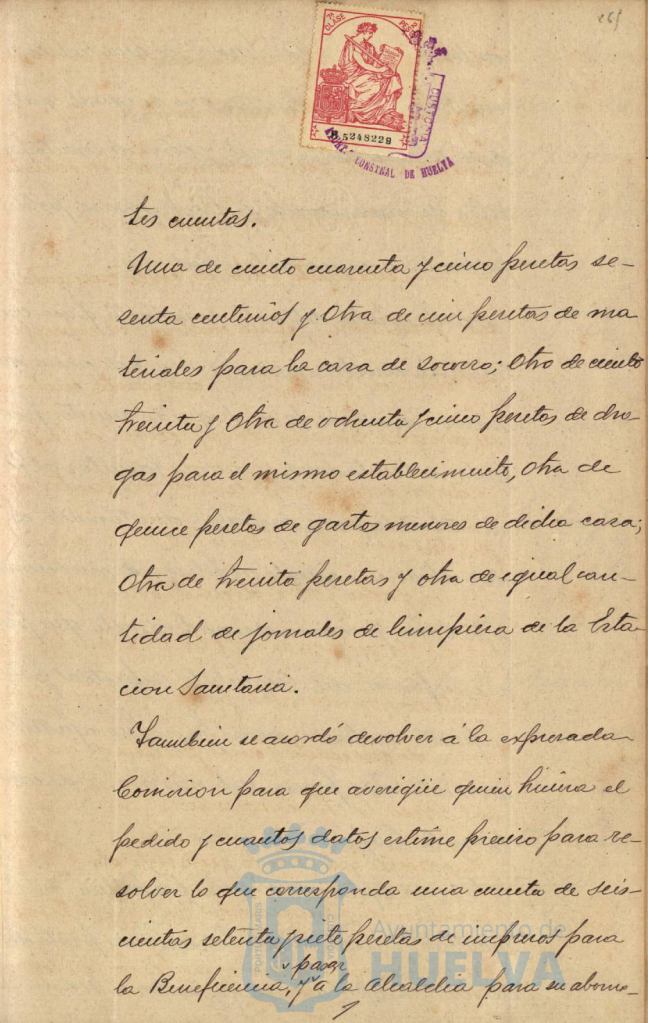 261
7ª CLASE
2 PESETAS
B.5248229
CUSTODIA
AYUNT. CONSTNAL DE HUELVA
tes cuentas.
Una de ciento cuarenta y cinco pesetas se-
senta centimos y otra de cien pesetas de ma
teriales para la casa de socorro; otro de ciento
treinta y otra de ochenta y cinco pesetas de dro-
gas para el mismo establecimiento, otra de
quince pesetas de gastos menores de dicha casa;
otra de treinta pesetas y otra de igual can-
tidad de jornales de limpieza de la Esta-
cion Sanitaria.
Tambien se acordó devolver á la expresada
Comision para que averigüe quien hiciera el
pedido y cuantos datos estime preciso para re-
solver lo que corresponda una cuenta de seis-
cientas setenta y siete pesetas de impresos para
pasar
la Beneficencia, y á la Alcaldia para su abono
Ayuntamiento de
HUELVA